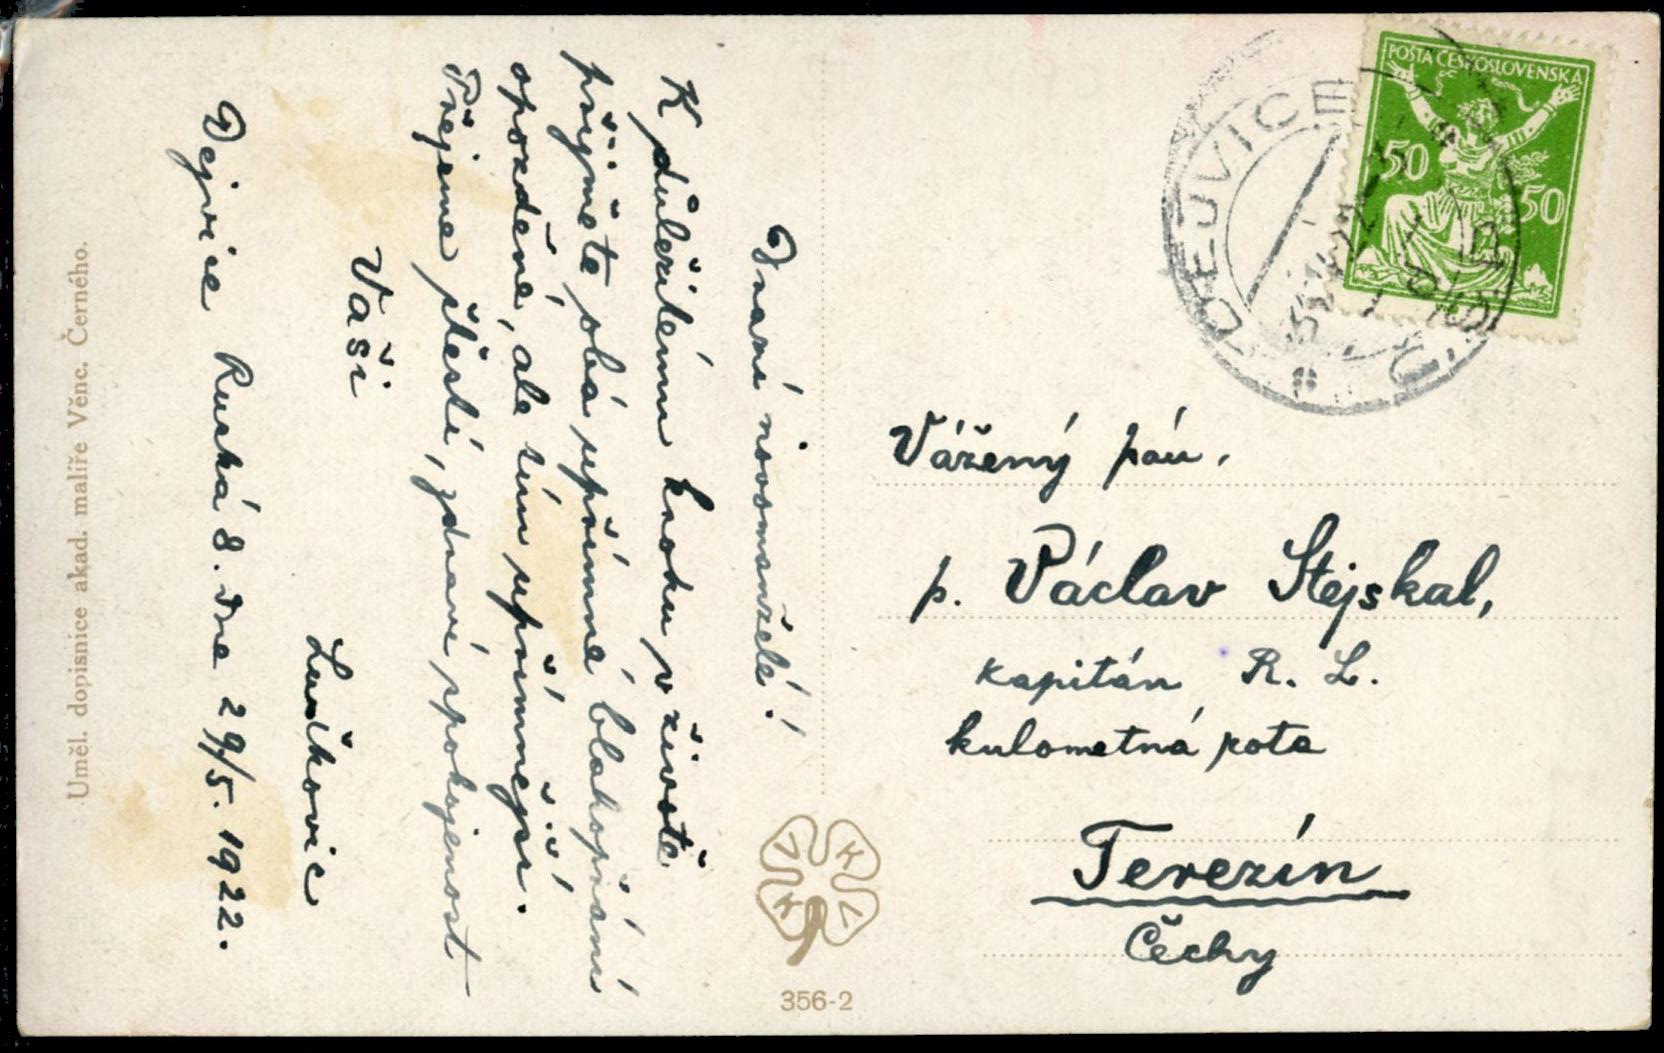 Drazí novomanželé!
K důležitému kroku v životě
přijměte obá upřímné blahopřání
opožděné, ale tím upřímnější.
Přejeme štěstí, zdraví, spokojenost
Vaši
Dejvice Ruská 8. dne 29/5. 1922.
Uměl. dopisnice akad. malíře Věnc. Černého.
356-2
V K V K
POŠTA ČESKOSLOVENSKÁ
50 50
DEJVICE
Vážený pán,
p. Václav Stejskal,
kapitán R. L.
kulometná rota
Terezín
Čechy